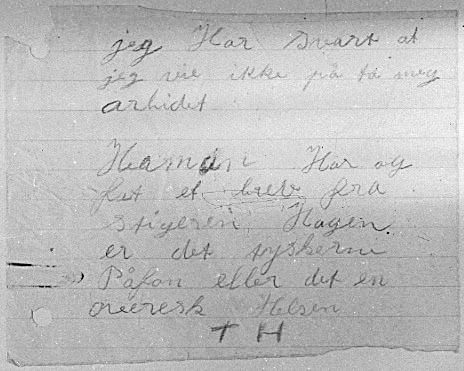 jeg Har svart at
jeg vie ikke på ta meg
arbidet
Haman Har og
fat et brev fra
stigeren, Hagen
er det tyskerne
Påfan eller det en
Helsen
T H